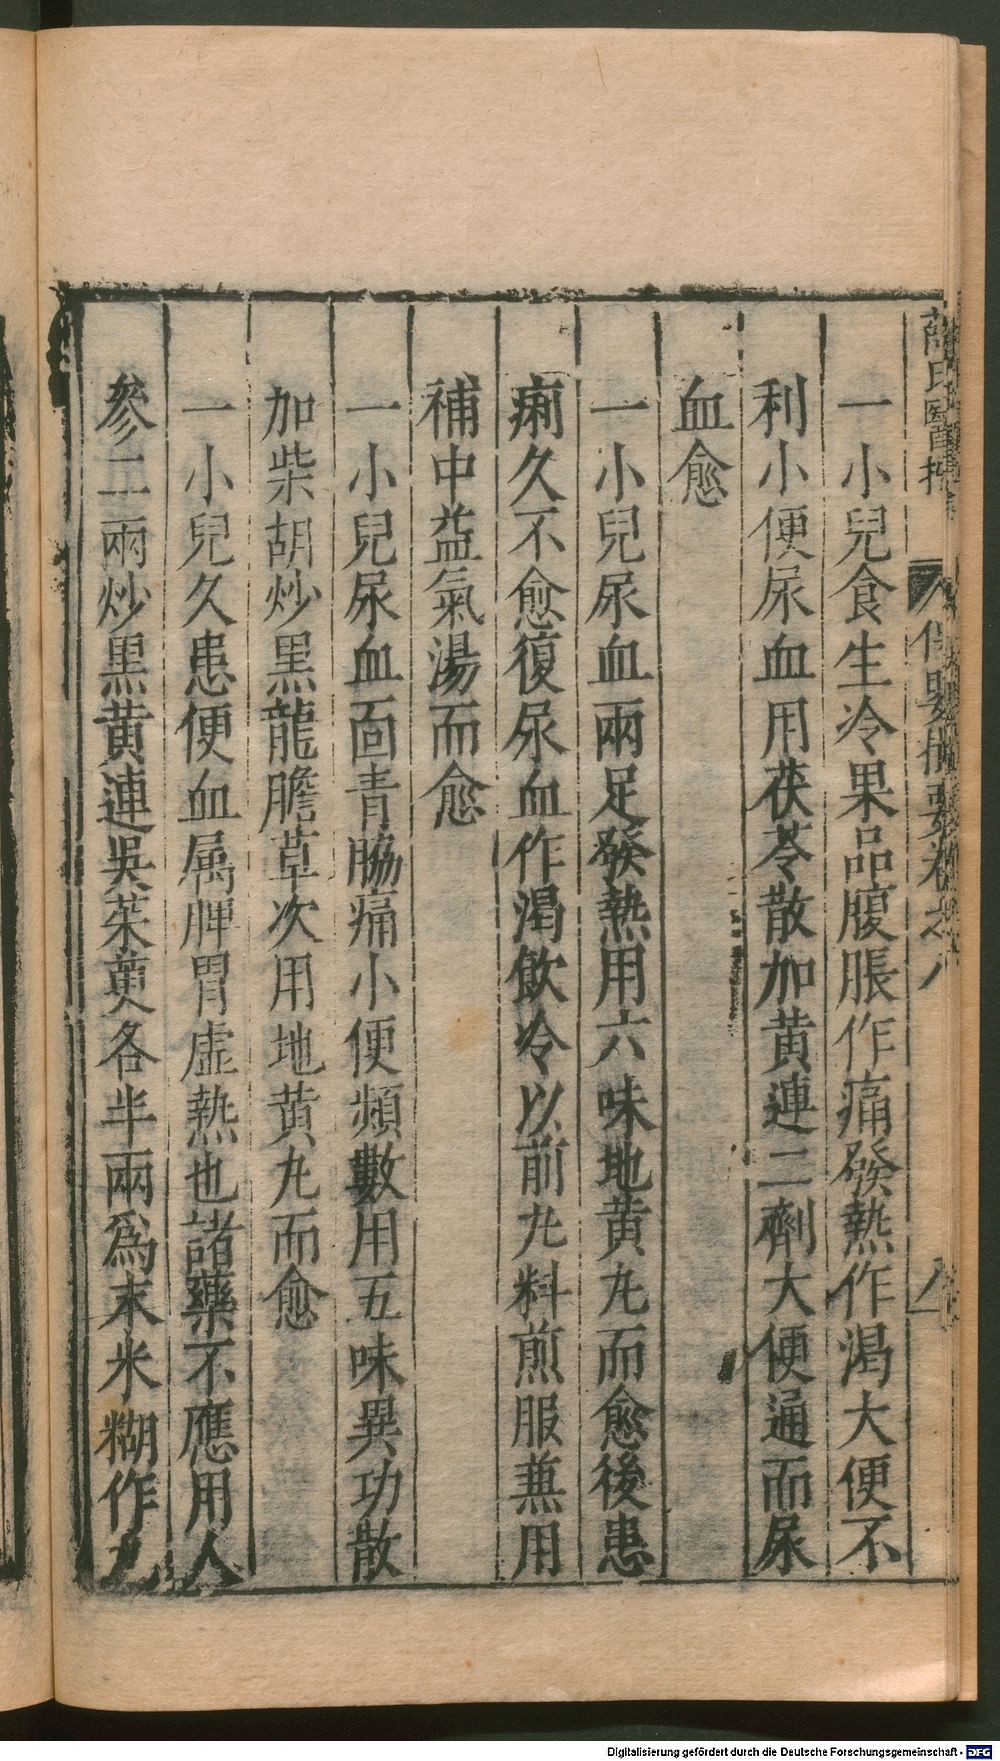 薛氏醫按 保嬰撮要卷之八 八
一小兒食生冷果品腹脹作痛發熱作渴大便不
利小便尿血用茯苓散加黃連二劑大便通而尿
血愈
一小兒尿血兩足發熱用六味地黃丸而愈後患
痢久不愈復尿血作渴飲冷以前丸料煎服兼用
補中益氣湯而愈
一小兒尿血面青脇痛小便頻數用五味異功散
加柴胡炒黑龍膽草次用地黃丸而愈
一小兒久患便血屬脾胃虛熱也諸藥不應用人
參二兩炒黑黃連吳茱萸各半兩爲末米糊作丸
Digitalisierung gefördert durch die Deutsche Forschungsgemeinschaft - DFG